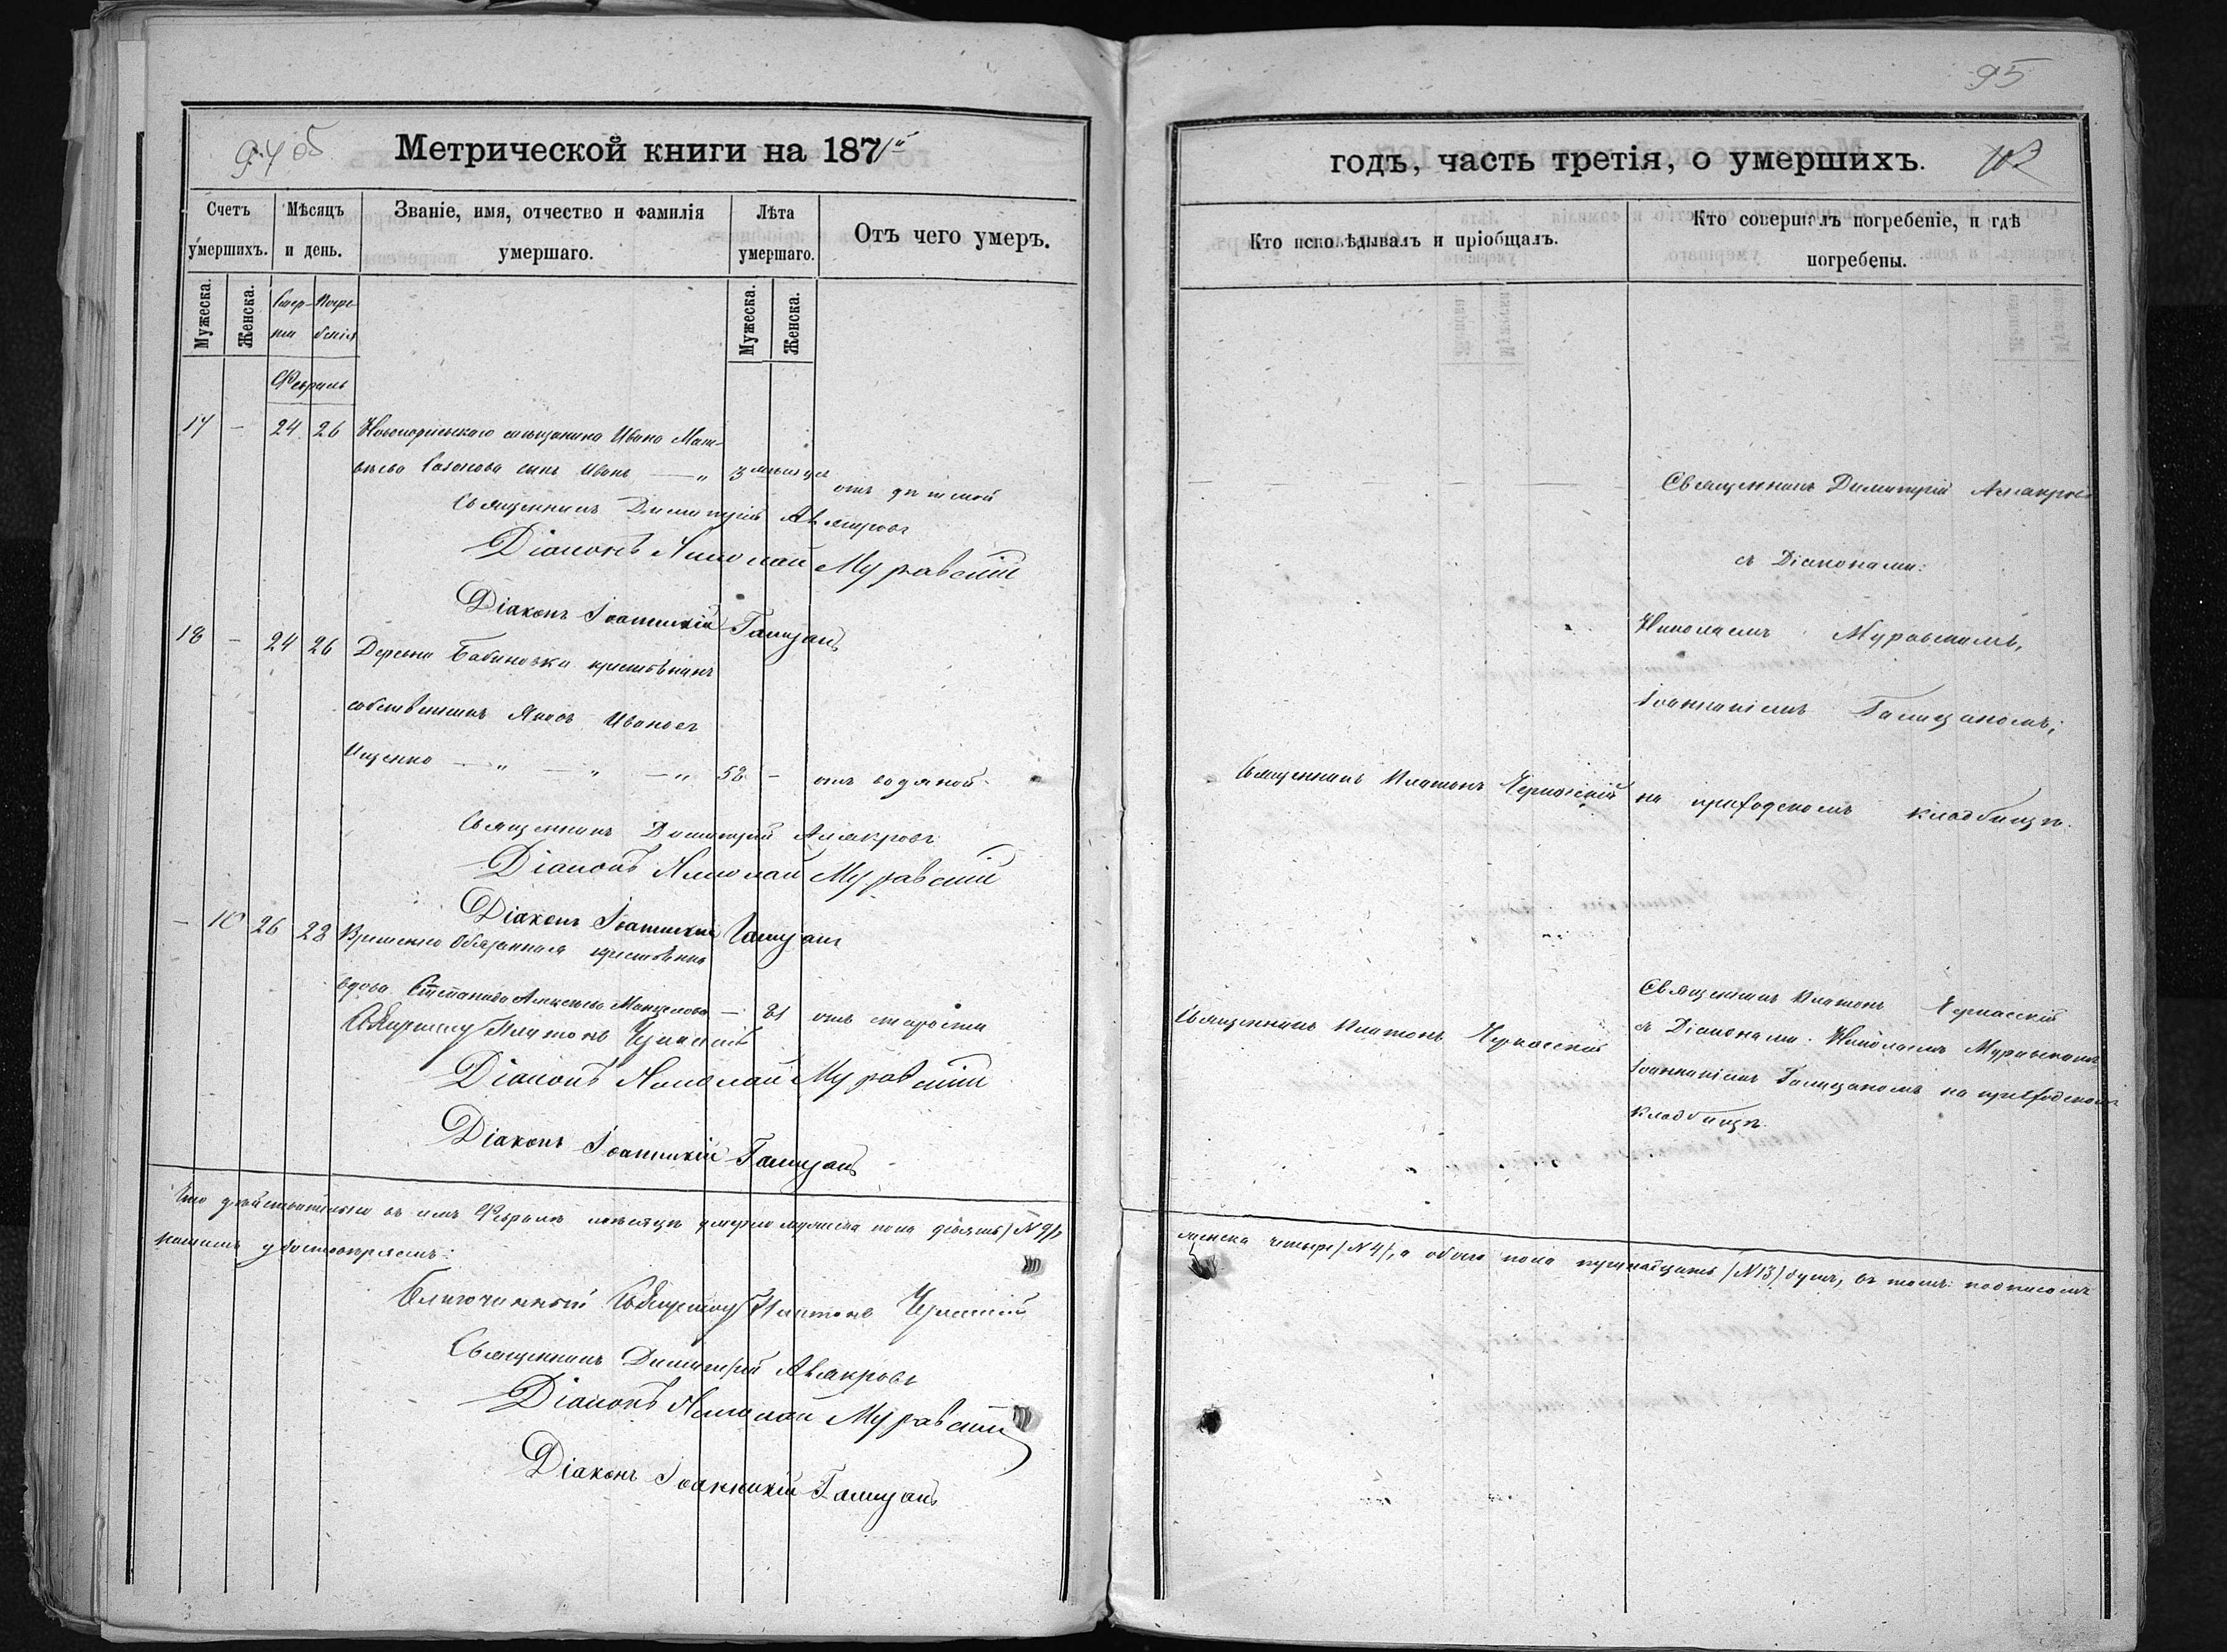 95
94 об
Метрической книги на 1871й
годъ, часть третія, о умершихъ.
Счетъ умершихъ.
Мѣсяцъ и день.
Званіе, имя, отчество и фамилія умершаго.
Лѣта умершаго.
Отъ чего умеръ.
Кто исповѣдывалъ и пріобщалъ.
Кто совершалъ погребеніе, и гдѣ погребены.
Мужеска.
Женска.
Смерти
Погребенія
Мужеска.
Женска.
Февраль
17 - 24 26
мѣщанина Ивана Мат-
вѣева сынъ Иванъ — „ 3 мѣсяца
Священникъ Димитрій
Діаконъ Николай Муравскій
Діаконъ Іоанникій Галицанъ
Священникъ Димитрій
съ Діаконами:
Николаемъ Муравскимъ,
Іоанникіемъ Галицаномъ;
на приходскомъ кладбищѣ.
18 - 24 26 Деревни Бабиновки крестьянинъ
собственникъ Яковъ Ивановъ
Ищенко — „ — „ — „ 58 - отъ водяной
Священникъ Платонъ Черкасскій
Священникъ Димитрій
Діаконъ Николай Муравскій
Діаконъ Іоанникій Галицанъ
- 10 26 28 Временно Обязанная крестьянка
вдова Степанида Алексѣева — 81 отъ старости
Священникъ Платонъ Черкасскій
Священникъ Платонъ Черкасскій
съ Діаконами: Николаемъ Муравскимъ
Іоанникіемъ Галицаномъ на приходскомъ
кладбищѣ.
Священникъ Платонъ Черкасскій
Діаконъ Николай Муравскій
Діаконъ Іоанникій Галицанъ
Что дѣйствительно въ семъ Февралѣ мѣсяцѣ умерло мужеска пола девять /№ 9/,
женска четыре /№ 4/, а обоего пола тринадцать /№ 13/ душъ, въ томъ подписомъ
нашимъ удостовѣряемъ:
Благочинный Священникъ Платонъ Черкасскій
Священникъ Димитрій
Діаконъ Николай Муравскій
Діаконъ Іоанникій Галицанъ